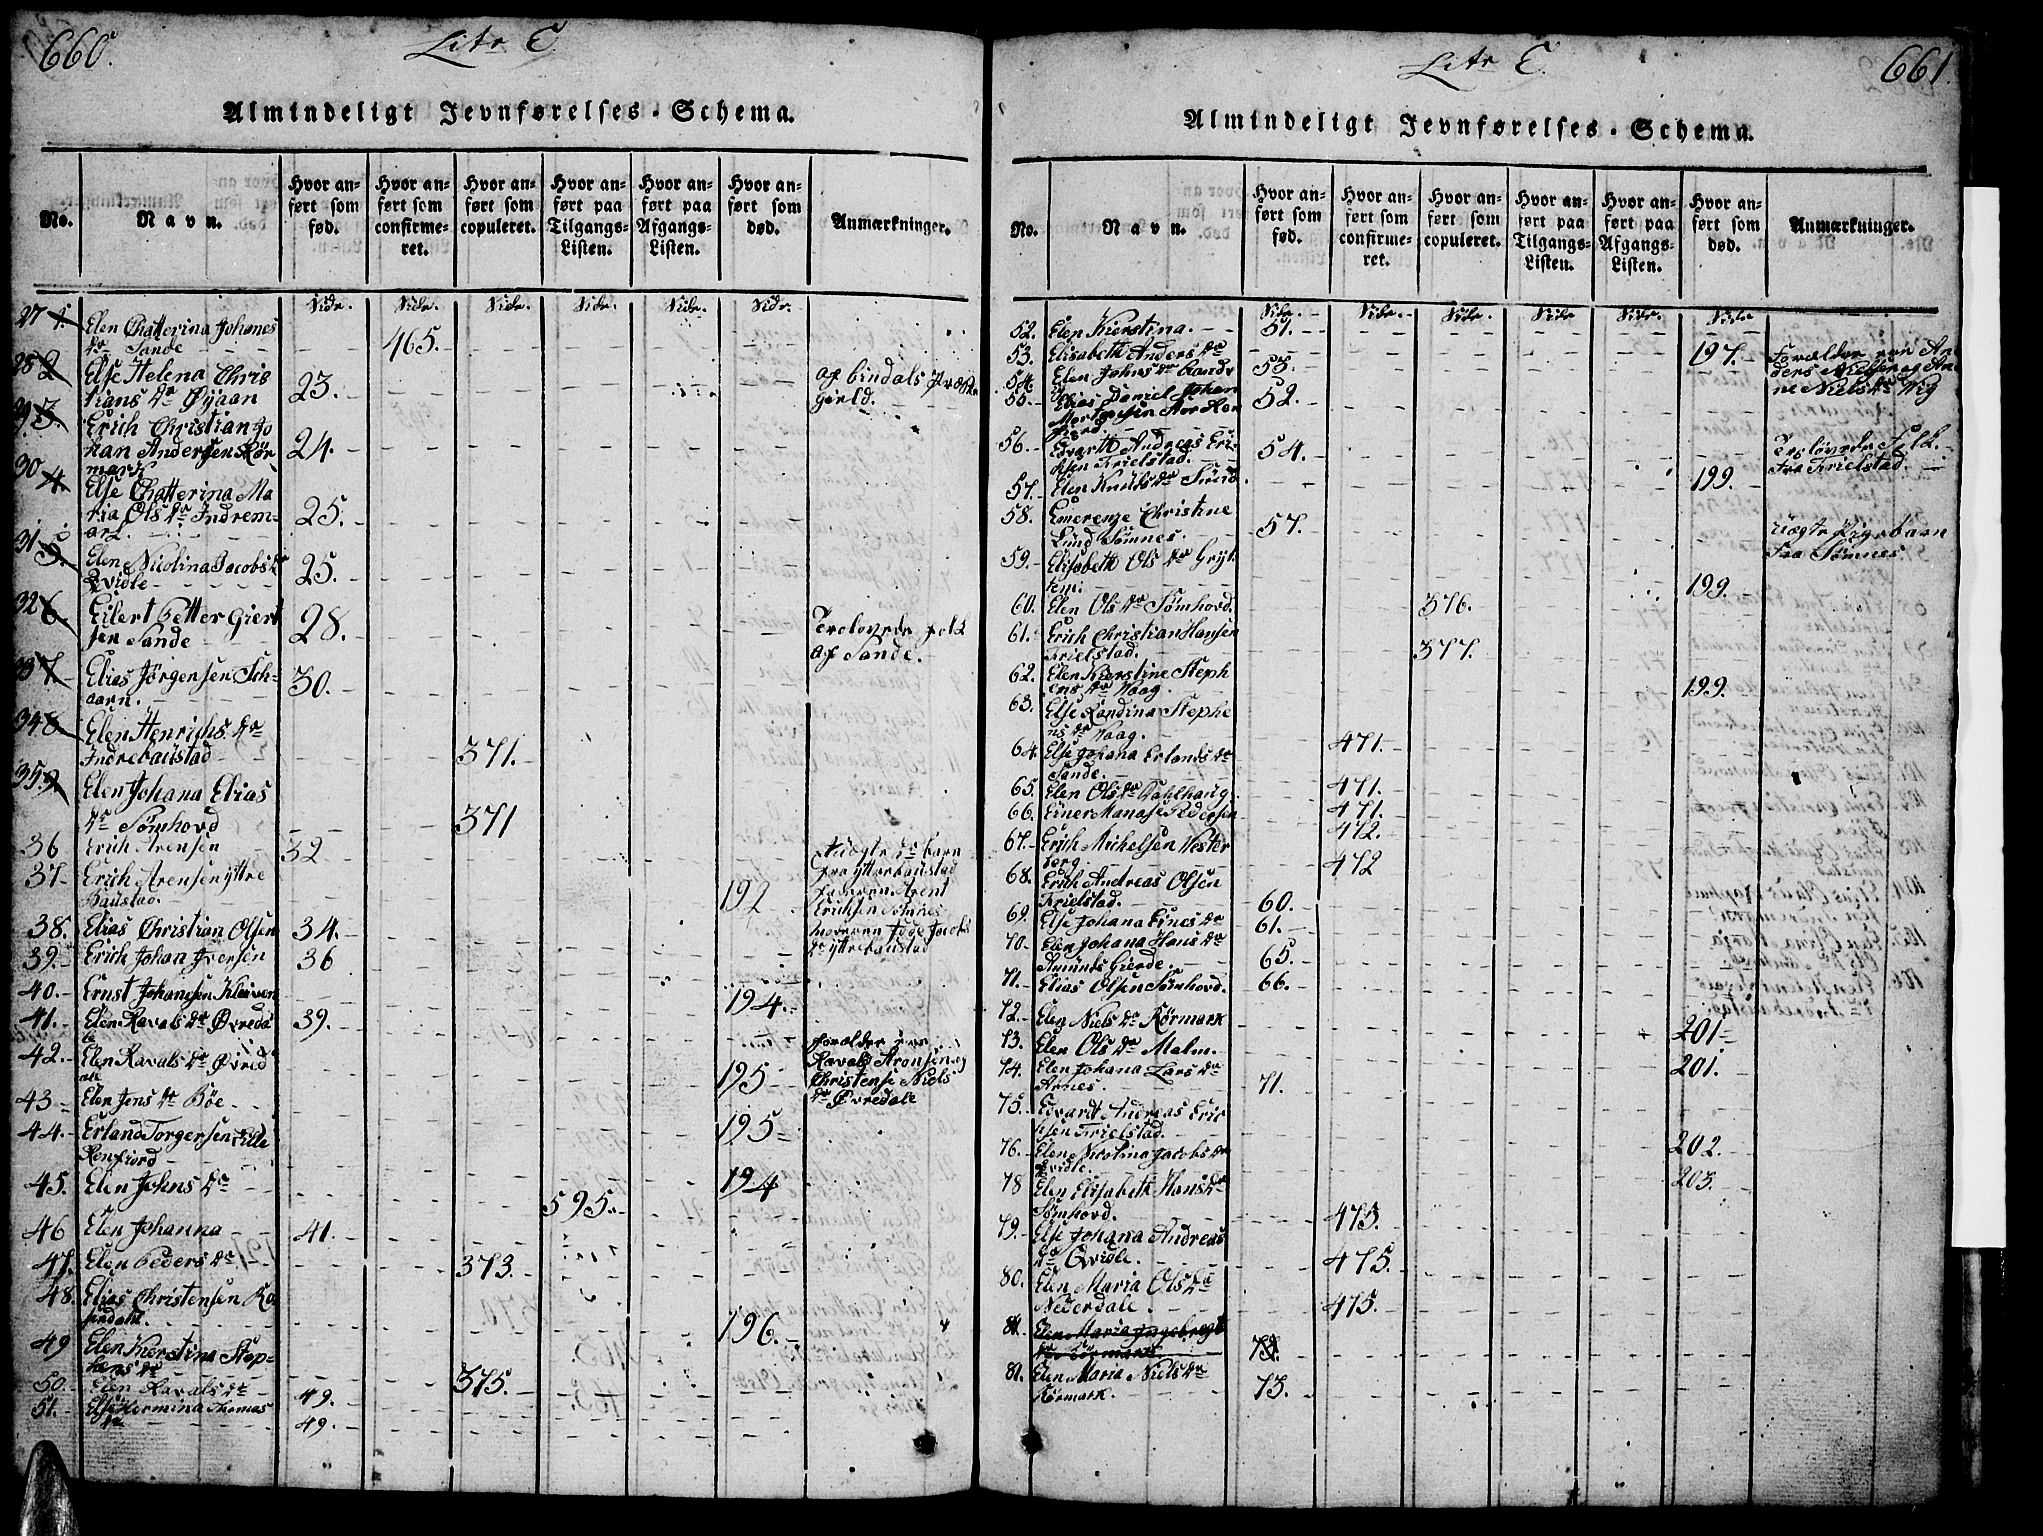 660.
Litr E
Almindeligt Jevnførelses-Schema.
No.
Navn.
Hvor an-
ført som
fød.
Hvor an-
ført som
confirme-
ret.
Hvor an-
ført som
copuleret.
Hvor an-
ført paa
Tilgangs-
Listen.
Hvor an-
ført paa
Afgangs-
Listen.
Hvor an-
ført som
død.
Anmærkninger.
Side. Side. Side. Side. Side. Side.
27 1. Elen Chatterina Johanes
dr Sande 465.
28 2 Else Helena Chris
tians dr Øyaan 23. af Bindals Præste
Gield.
29 3. Erich Christian Jo
han Andersen Kör
mark 24.
30 4 Else Chatterina Ma
ria Ols dr Indrem-
ark. 25.
31 5. Elen Nicolina Jacobs dr
Qvidle 25.
32 6. Eilert Petter Giert
sen Sande 28. Troloved folk
af Sande.
33 7. Elias Jörgensen Sch-
aarn. 30.
34 8. Elen Henrichs dr
Indrebaustad 371.
35. 9 Elen Johana Elias
dr Sömhovd 371
36 Erich Arensen 32 Uægte barn
fra yttrebaustad
faderen Arent
Eriksen Sömnes
moderen Jacobs
dr yttrebaustad
37. Erich Arensen yttre
Baustad. 192
38. Elias Christian Olsen 34.
39. Erich Johan Iversen 36
40. Ernst Johansen Kleiven 194.
41. Elen Ravals dr Øvreda
le 39.
42. Elen Ravals dr Øvred
ale 195 forælder ere
Ravals Aronsen og
Christense Niels
dr Øvredale
43 Elen Jens dr Böe 195
44. Erland Torgersen Lille
Renfiord 194
45. Elen Johns dr 595.
46 Elen Johanna 41.
47. Elen Peders dr 373.
48. Elias Christensen Ro
sendahl. 196.
49 Elen Kierstina Step-
hens dr 375.
50. Elen Ravals dr 49.
51. Else Hermina Thomas
dr 49.
661.
Litr E.
Almindeligt Jevnførelses-Schema.
No.
Navn.
Hvor an-
ført som
fød.
Hvor an-
ført som
confirme-
ret.
Hvor an-
ført som
copuleret.
Hvor an-
ført paa
Tilgangs-
Listen.
Hvor an-
ført paa
Afgangs-
Listen.
Hvor an-
ført som
død.
Anmærkninger.
Side. Side. Side. Side Side. Side
52. Elen Kierstina. 51.
53. Elisabeth Anders dr 197. Forælder ere An
ders Nielsen og An
ne Niels dr Vig
54. Elen Johns dr Sande 53.
55. Elias Daniel Johan
Mortensen Stor Ren
fiord. 52.
56. Edvarth Andreas Eri-
chsen Trielstad. 54. Troloved Folk
fra Trielstad.
57. Elen Knuts dr Sund. 199.
58. Emerenze Christine
Lund Sömnes. 57. Uægte Pigebarn
fra Sömnes
59. Elisabeth Ols dr Gryt
tem. 199.
60. Elen Ols dr Sömhovd. 376.
61. Erich Christian Hansen
Trielstad. 377.
62. Elen Kierstine Steph
ens dr Waag. 199.
63. Else Randina Stephe
ns dr Waag. 471.
64. Else Johana Erlands dr
Sande. 471.
65. Elen Ols dr Dahlhaug. 471.
66. Einer Manase Pedersen 472.
67. Erich Michelsen Vester
berg. 472
68. Erich Andreas Olsen
Trielstad. 60.
69. Else Johana Eines dr 61.
70. Elen Johana Hans dr
Amunds Gierde. 65.
71. Elias Olsen Sömhovd. 66.
72. Elen Niels dr Körmark 201
73. Elen Ols dr Malm. 201.
74. Elen Johana Lars dr
Arnes. 71.
75. Edvardt Andreas Eric
hsen Trielstad. 202.
76. Elen Nicolina Jacobs dr
Qvidle. 203.
78 Elen Elisabeth Hans dr
Sömhovd. 473.
79. Else Johana Andreas
dr Qvidle. 475.
80. Elen Maria Ols dr
Nederdale. 475.
81. Elen Maria Ingebregt
dr Körmark. 73.
81. Elen Maria Niels dr
Körmark. 73.